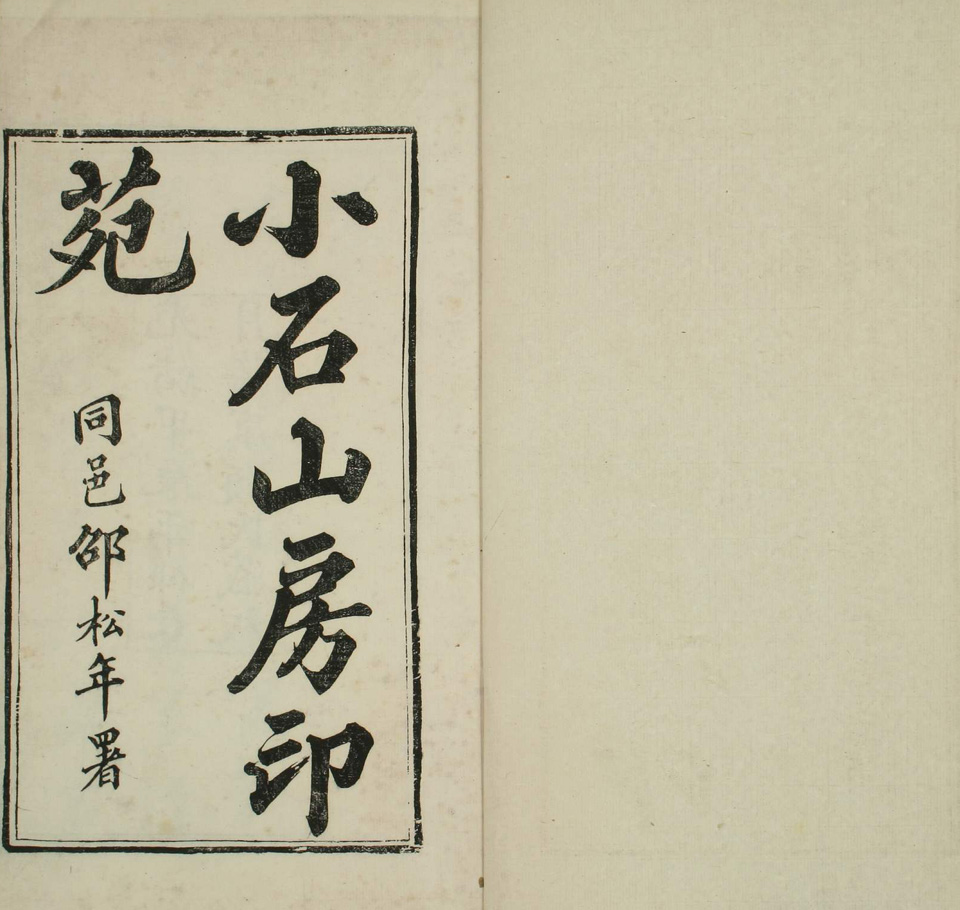 小石山房印
苑
同邑邵松年署